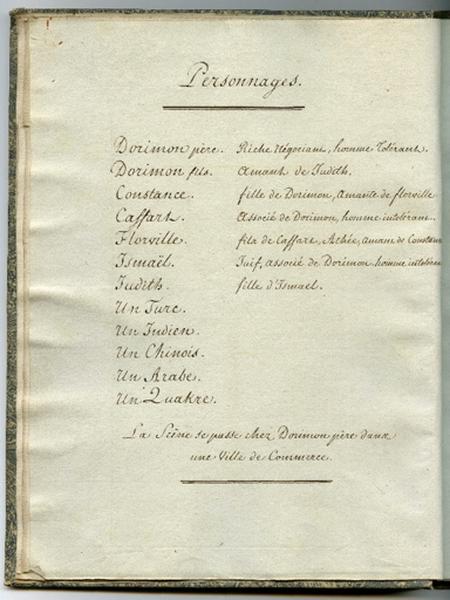 Personnages.
Dorimon père. Riche Négociant, homme Tolérant.
Dorimon fils. Amant de Judith.
Constance. fille de Dorimon, Amante de florville
Caffart. Associé de Dorimon, homme intolérant.
Florville. fils de Caffart, Athée, amant de Constan
Ismaël. Juif, associé de Dorimon homme intoléran
Judith. fille d'Ismael.
Un Turc.
Un Indien.
Un Chinois.
Un Arabe.
Un Quakre.
La Scène se passe chez Dorimon père dans
une Ville de Commerce.